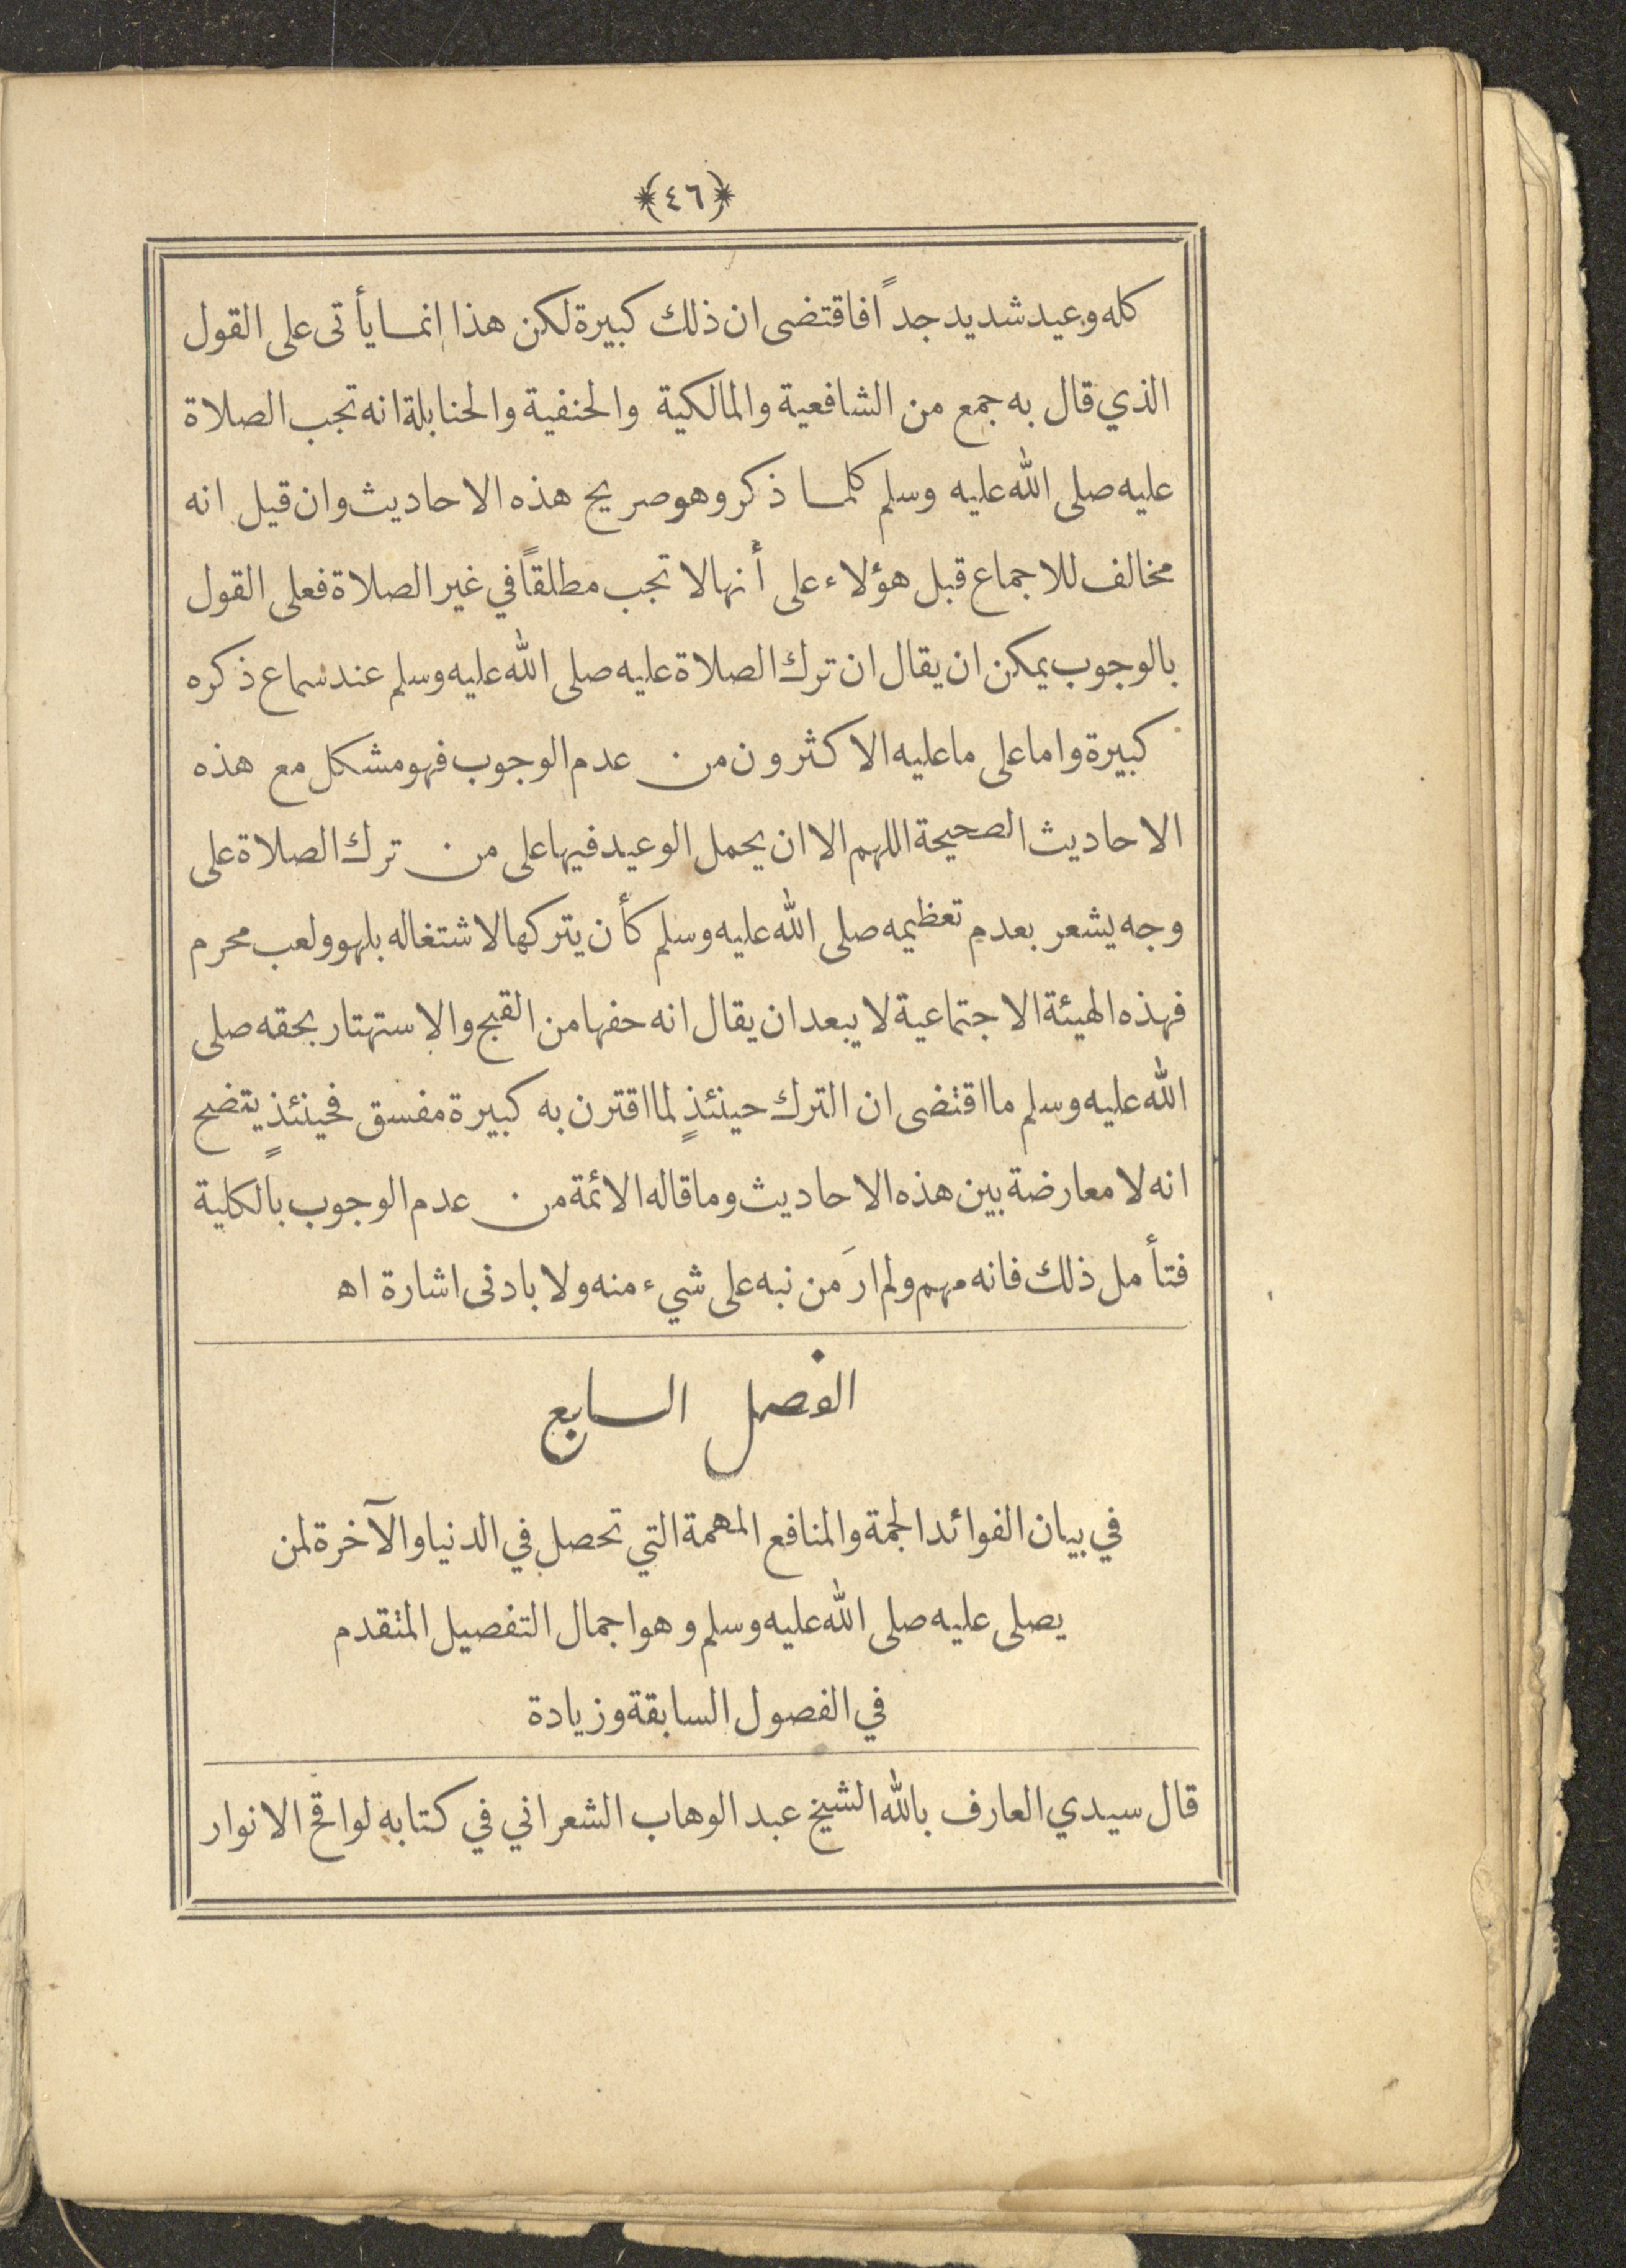 ﴿٤٦﴾
كله وعيد شديد جداً فاقتضى ان ذلك كبيرة لكن هذا انما يأتى على القول
الذي قال به جمع من الشافعية والمالكية والحنفية والحنابلة انه تجب الصلاة
عليه صلى الله عليه وسلم كلما ذكر وهو صريح هذه الاحاديث وان قيل انه
مخالف للاجماع قبل هؤلاء على أنها لا تجب مطلقاً في غير الصلاة فعلى القول
بالوجوب يمكن ان يقال ان ترك الصلاة عليه صلى الله عليه وسلم عند سماع ذكره
كبيرة واما على ما عليه الاكثرون من عدم الوجوب فهو مشكل مع هذه
الاحاديث الصحيحة اللهم الا ان يحمل الوعيد فيها على من ترك الصلاة على
وجه يشعر بعدم تعظيمه صلى الله عليه وسلم كأن يتركها لاشتغاله بلهو ولعب محرم
فهذه الهيئة الاجتماعية لا يبعد ان يقال انه حفها من القبح والاستهتار بحقه صلى
الله عليه وسلم ما اقتضى ان الترك حينئذٍ لما اقترن به كبيرة مفسق فحينئذٍ يتضح
انه لا معارضة بين هذه الاحاديث وما قاله الائمة من عدم الوجوب بالكلية
فتأمل ذلك فانه مهم ولم ارَ من نبه على شيء منه ولا بادنى اشارة اه
الفصل السابع
في بيان الفوائد الجمة والمنافع المهمة التي تحصل في الدنيا والآخرة لمن
يصلى عليه صلى الله عليه وسلم وهو اجمال التفصيل المتقدم
في الفصول السابقة وزيادة
قال سيدي العارف بالله الشيخ عبد الوهاب الشعراني في كتابه لواقح الانوار